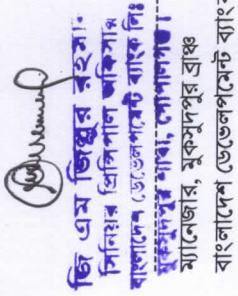 জি এম জিল্লুর রহমান
সিনিয়র প্রিন্সিপাল অফিসার
বাংলাদেশ ডেভেলপমেন্ট ব্যাংক লিঃ
মুকসুদপুর শাখা, গোপালগঞ্জ।
ম্যানেজার, মুকসুদপুর ব্রাঞ্চ
বাংলাদেশ ডেভেলপমেন্ট ব্যাংক